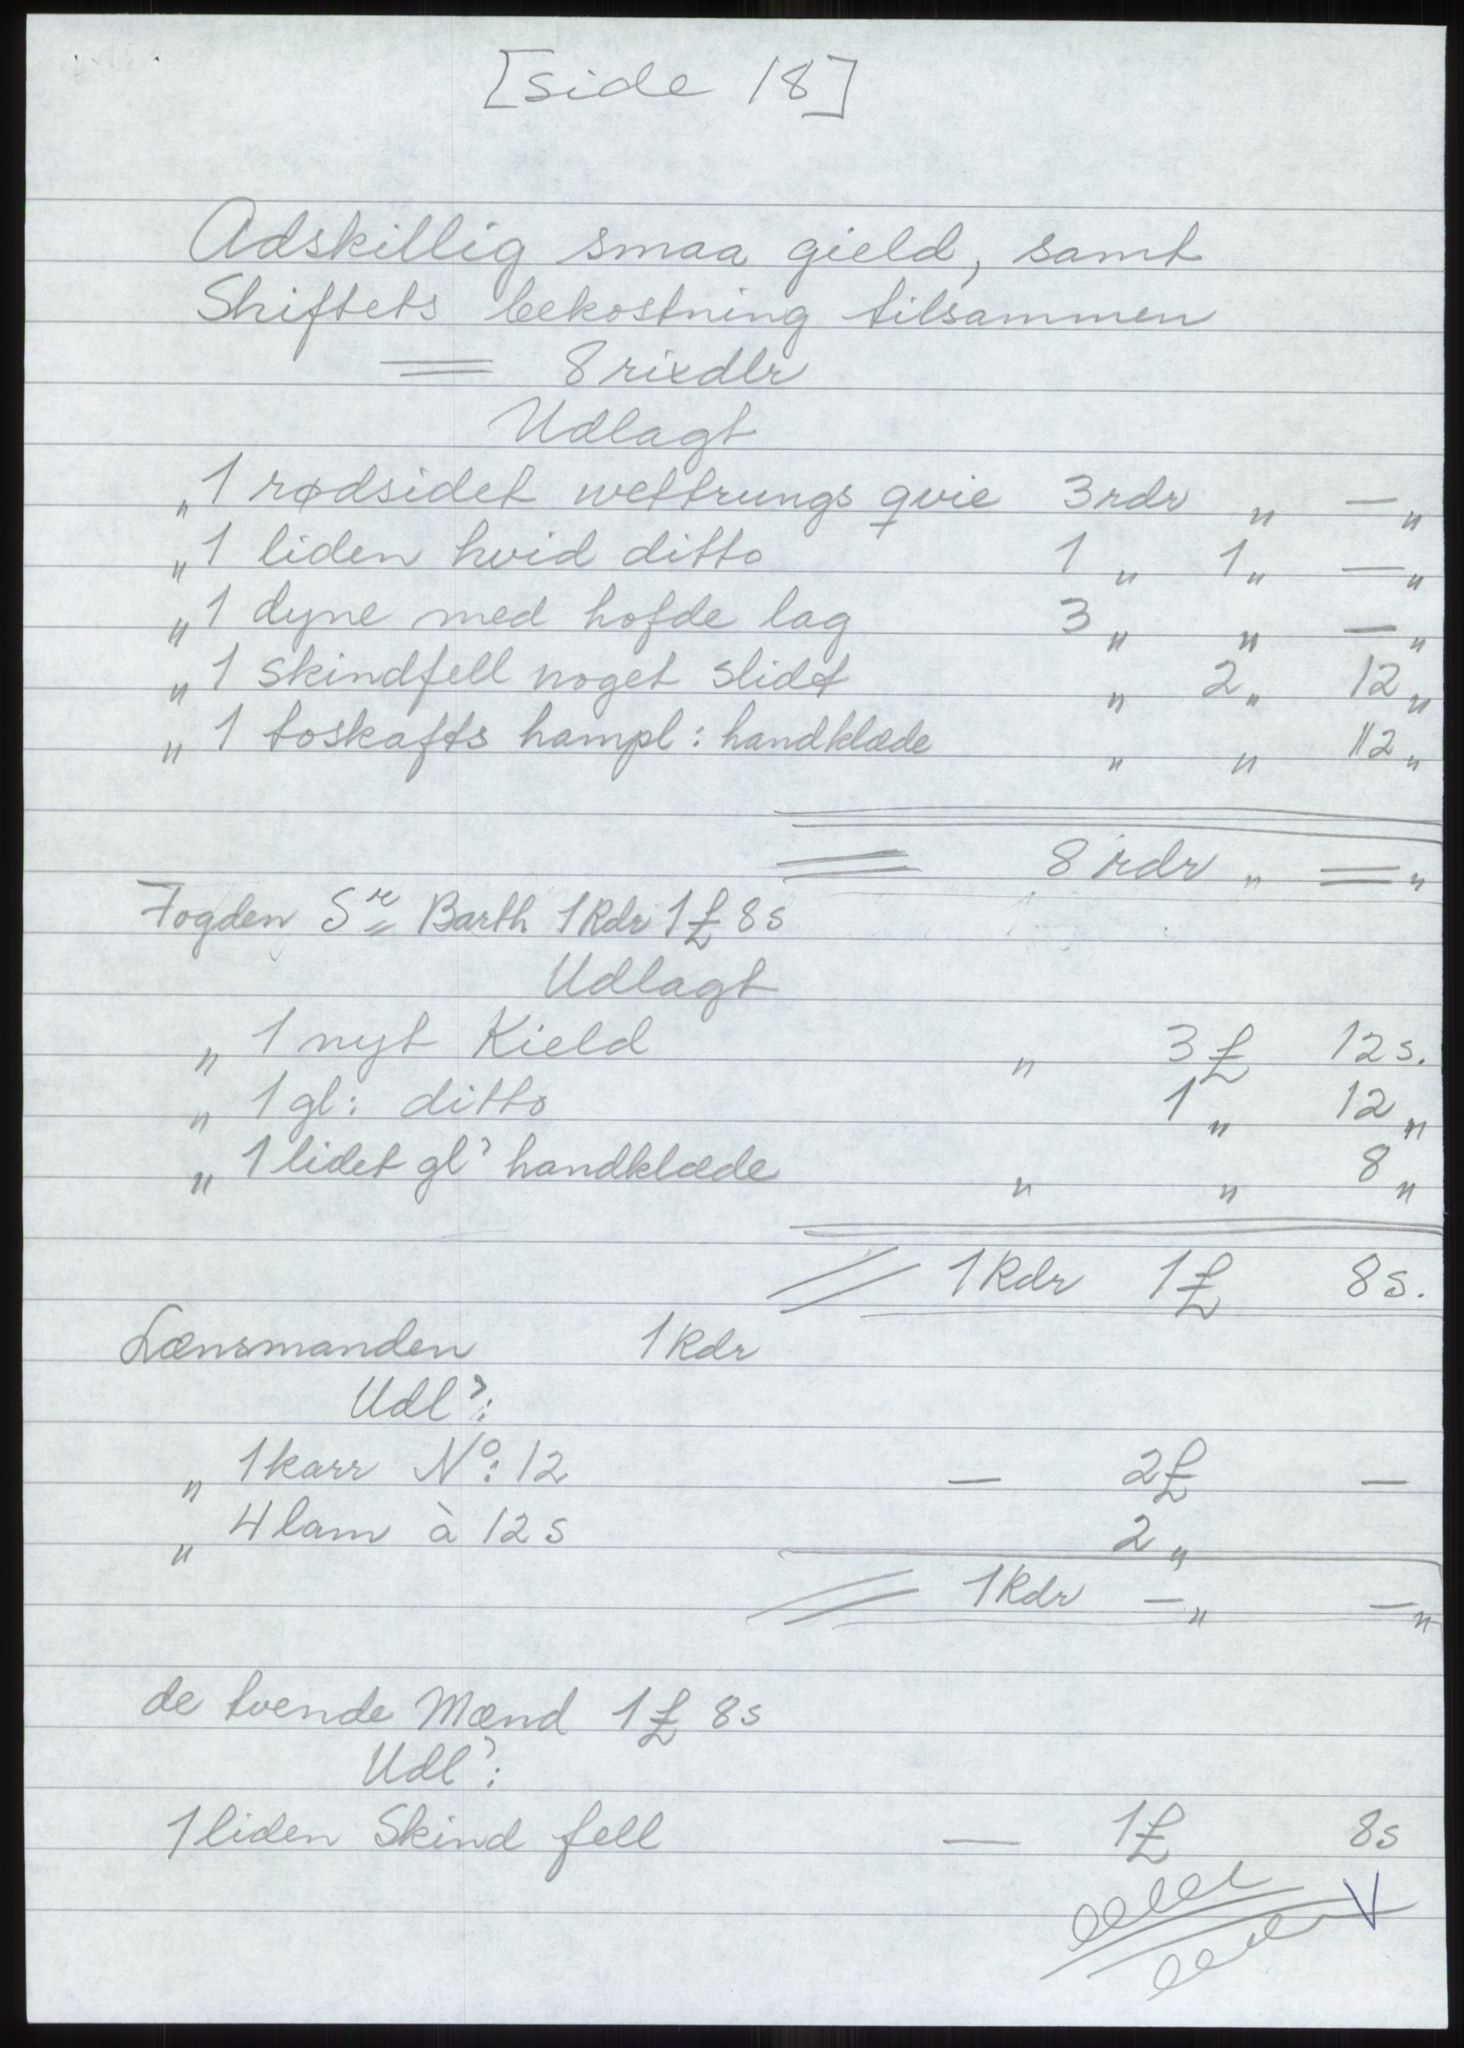 [side 18]
Adskillig smaa gield, samt
Skiftets bekostning tilsammen
= 8 rixdlr
Udlagt
„ 1 rødsidet wettrungs qvie 3 rdr „ — „
„ 1 liden hvid ditto 1 „ 1 „ — „
„ 1 dyne med hofde lag 3 „ „ — „
„ 1 skindfell noget slidt „ 2 „ 12 „
„ 1 toskafts hampl: handklæde „ „ 12 „
= 8 rdr „ = „
Fogden Sr Barth 1 Rdr 1 £ 8 s
Udlagt
„ 1 nyt Kield „ 3 £ 12 s.
„ 1 gl: ditto 1 „ 12 „
„ 1 lidet gl' handklæde „ „ 8 „
// 1 Rdr 1 £ 8 s.
Lænsmanden 1 Rdr
Udl':
„ 1 karr No: 12 — 2 £ —
„ 4 lam à 12 s 2 „
// 1 Rdr — „ — „
de tvende Mænd 1 £ 8 s
Udl':
1 liden Skind fell — 1 £ 8 s